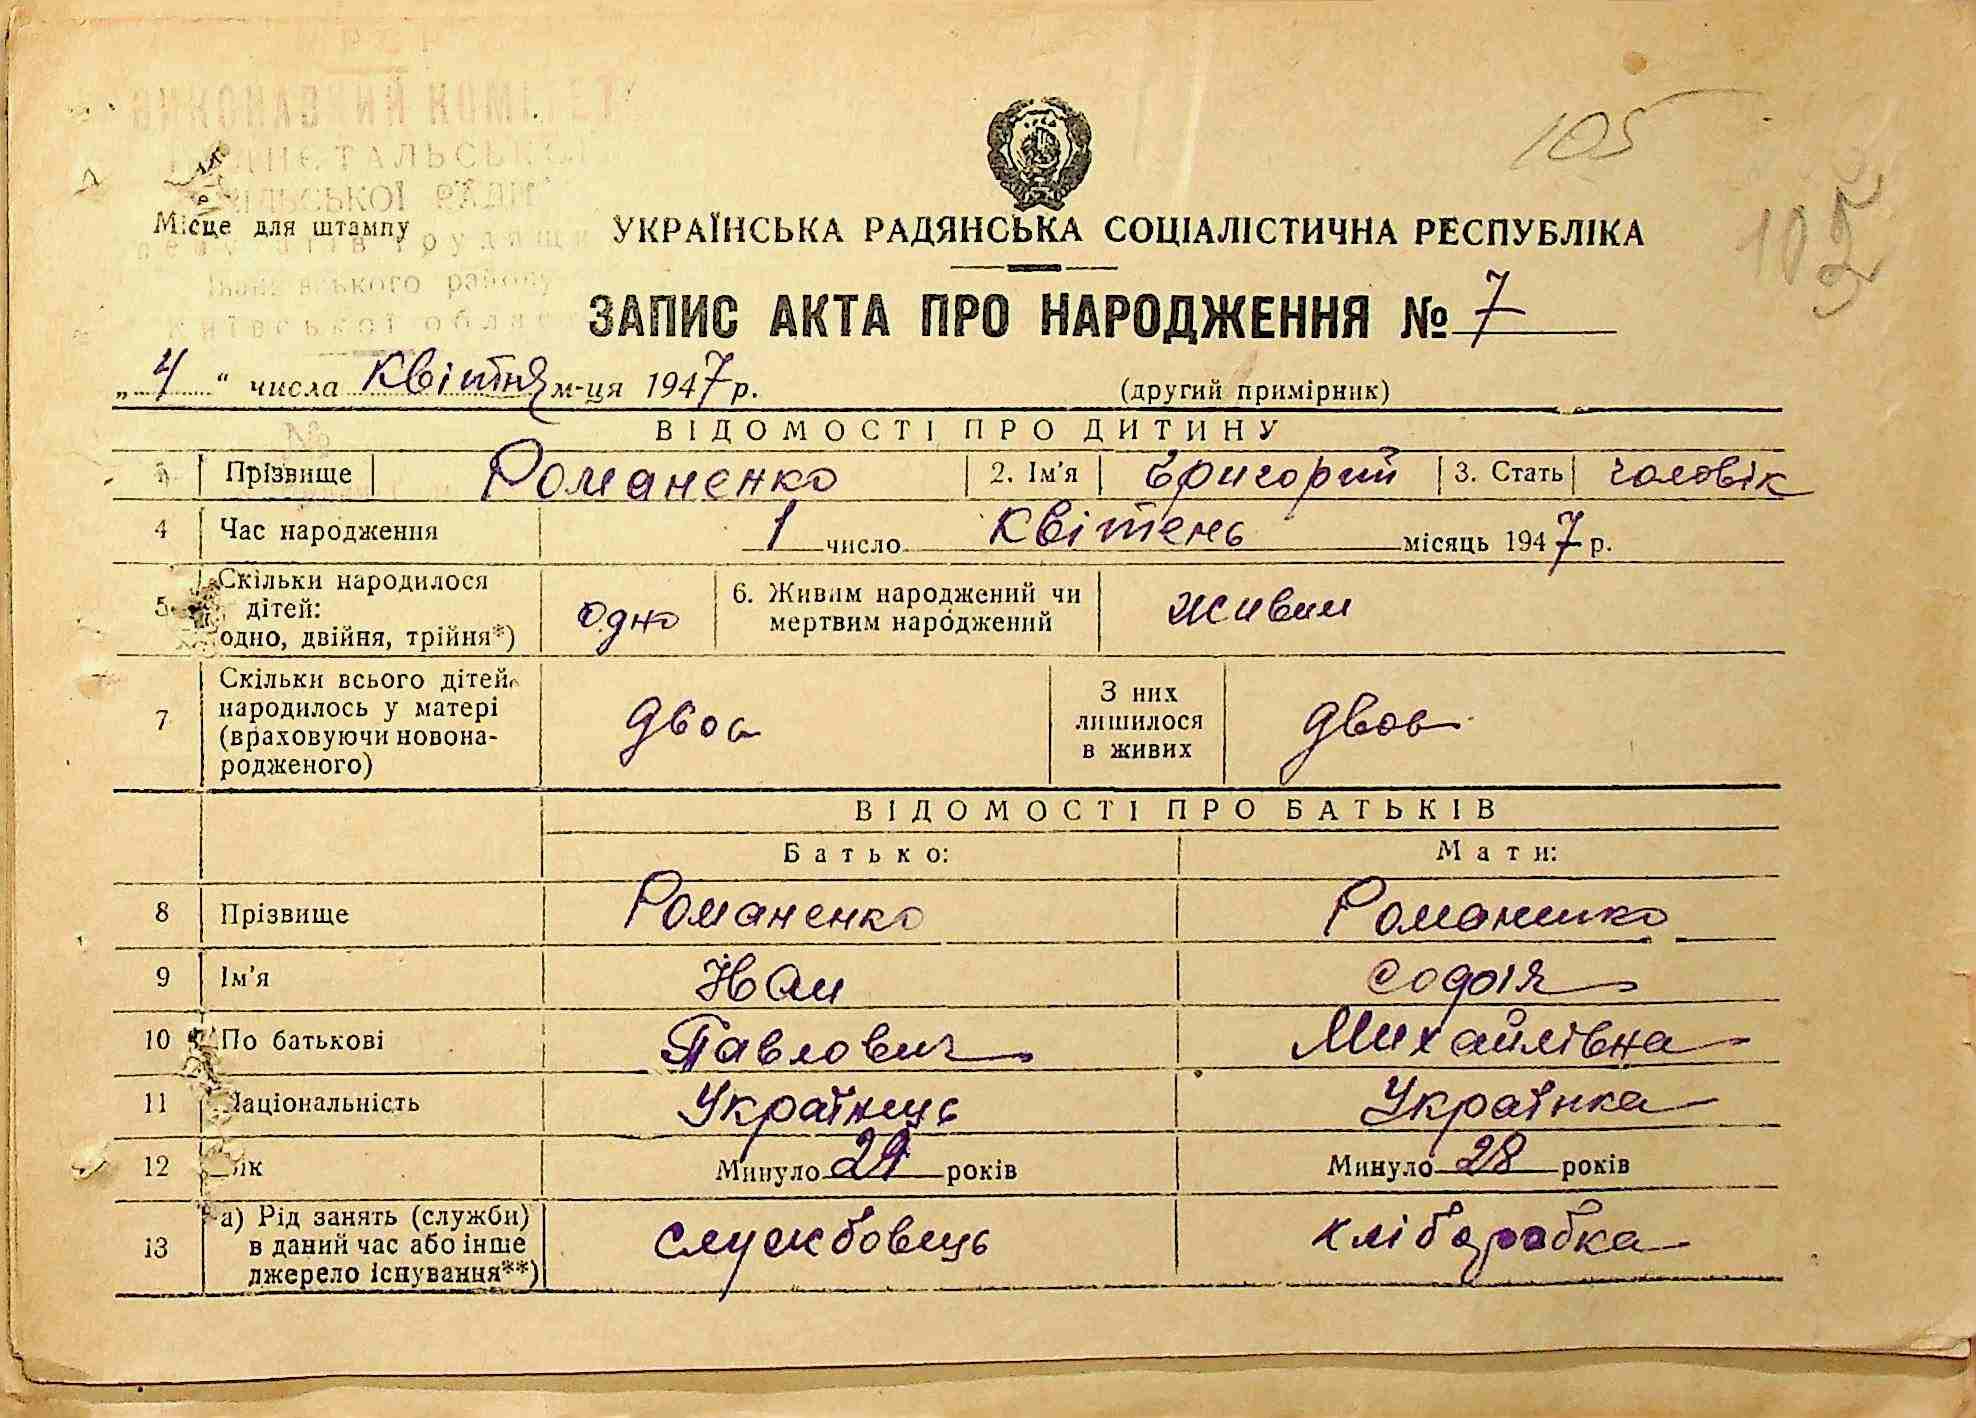 105
ВИКОНАВЧИЙ КОМІТЕТ
СІЛЬСЬКОЇ РАДИ
Місце для штампу
УКРАЇНСЬКА РАДЯНСЬКА СОЦІАЛІСТИЧНА РЕСПУБЛІКА
району
Київської
ЗАПИС АКТА ПРО НАРОДЖЕННЯ № 7
„ 4 “ числа Квітня м-ця 1947 р. (другий примірник)
№
ВІДОМОСТІ ПРО ДИТИНУ
Прізвище Романенко 2. Ім'я Григорий 3. Стать чоловік
4 Час народження 1 число Квітень місяць 1947 р.
5 Скільки народилося дітей: одно, двійня, трійня*) одно 6. Живим народжений чи мертвим народжений живим
7 Скільки всього дітей народилось у матері (враховуючи новонародженого) двоє З них лишилося в живих двоє
ВІДОМОСТІ ПРО БАТЬКІВ
Батько: Мати:
8 Прізвище Романенко Романенко
9 Ім'я Іван Софія
10 По батькові Павлович Михайлівна
11 Національність Українець Українка
12 Вік Минуло 29 років Минуло 28 років
13 а) Рід занять (служби) в даний час або інше джерело існування**) службовець хліборобка